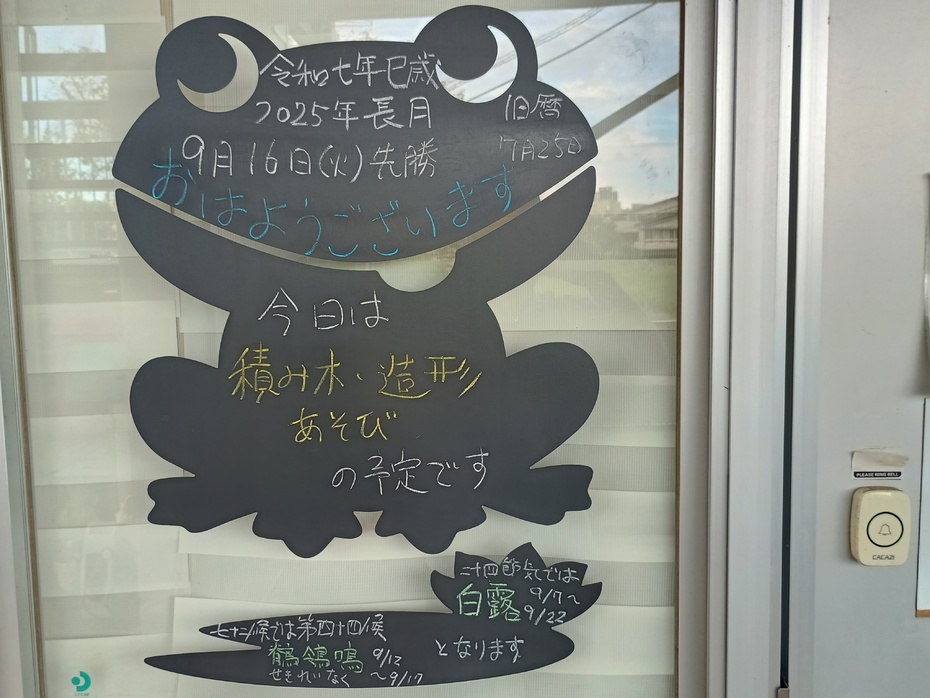 令和七年巳歳
2025年長月
旧暦
7月25日
9月16日(火)先勝
おはようございます
今日は
積み木、造形
あそび
の予定です
二十四節気では
白露 9/7～
9/22
となります
七十二候では第四十四候
鶺鴒鳴 9/12
せきれいなく ～9/17
PLEASE RING BELL
CACAZI